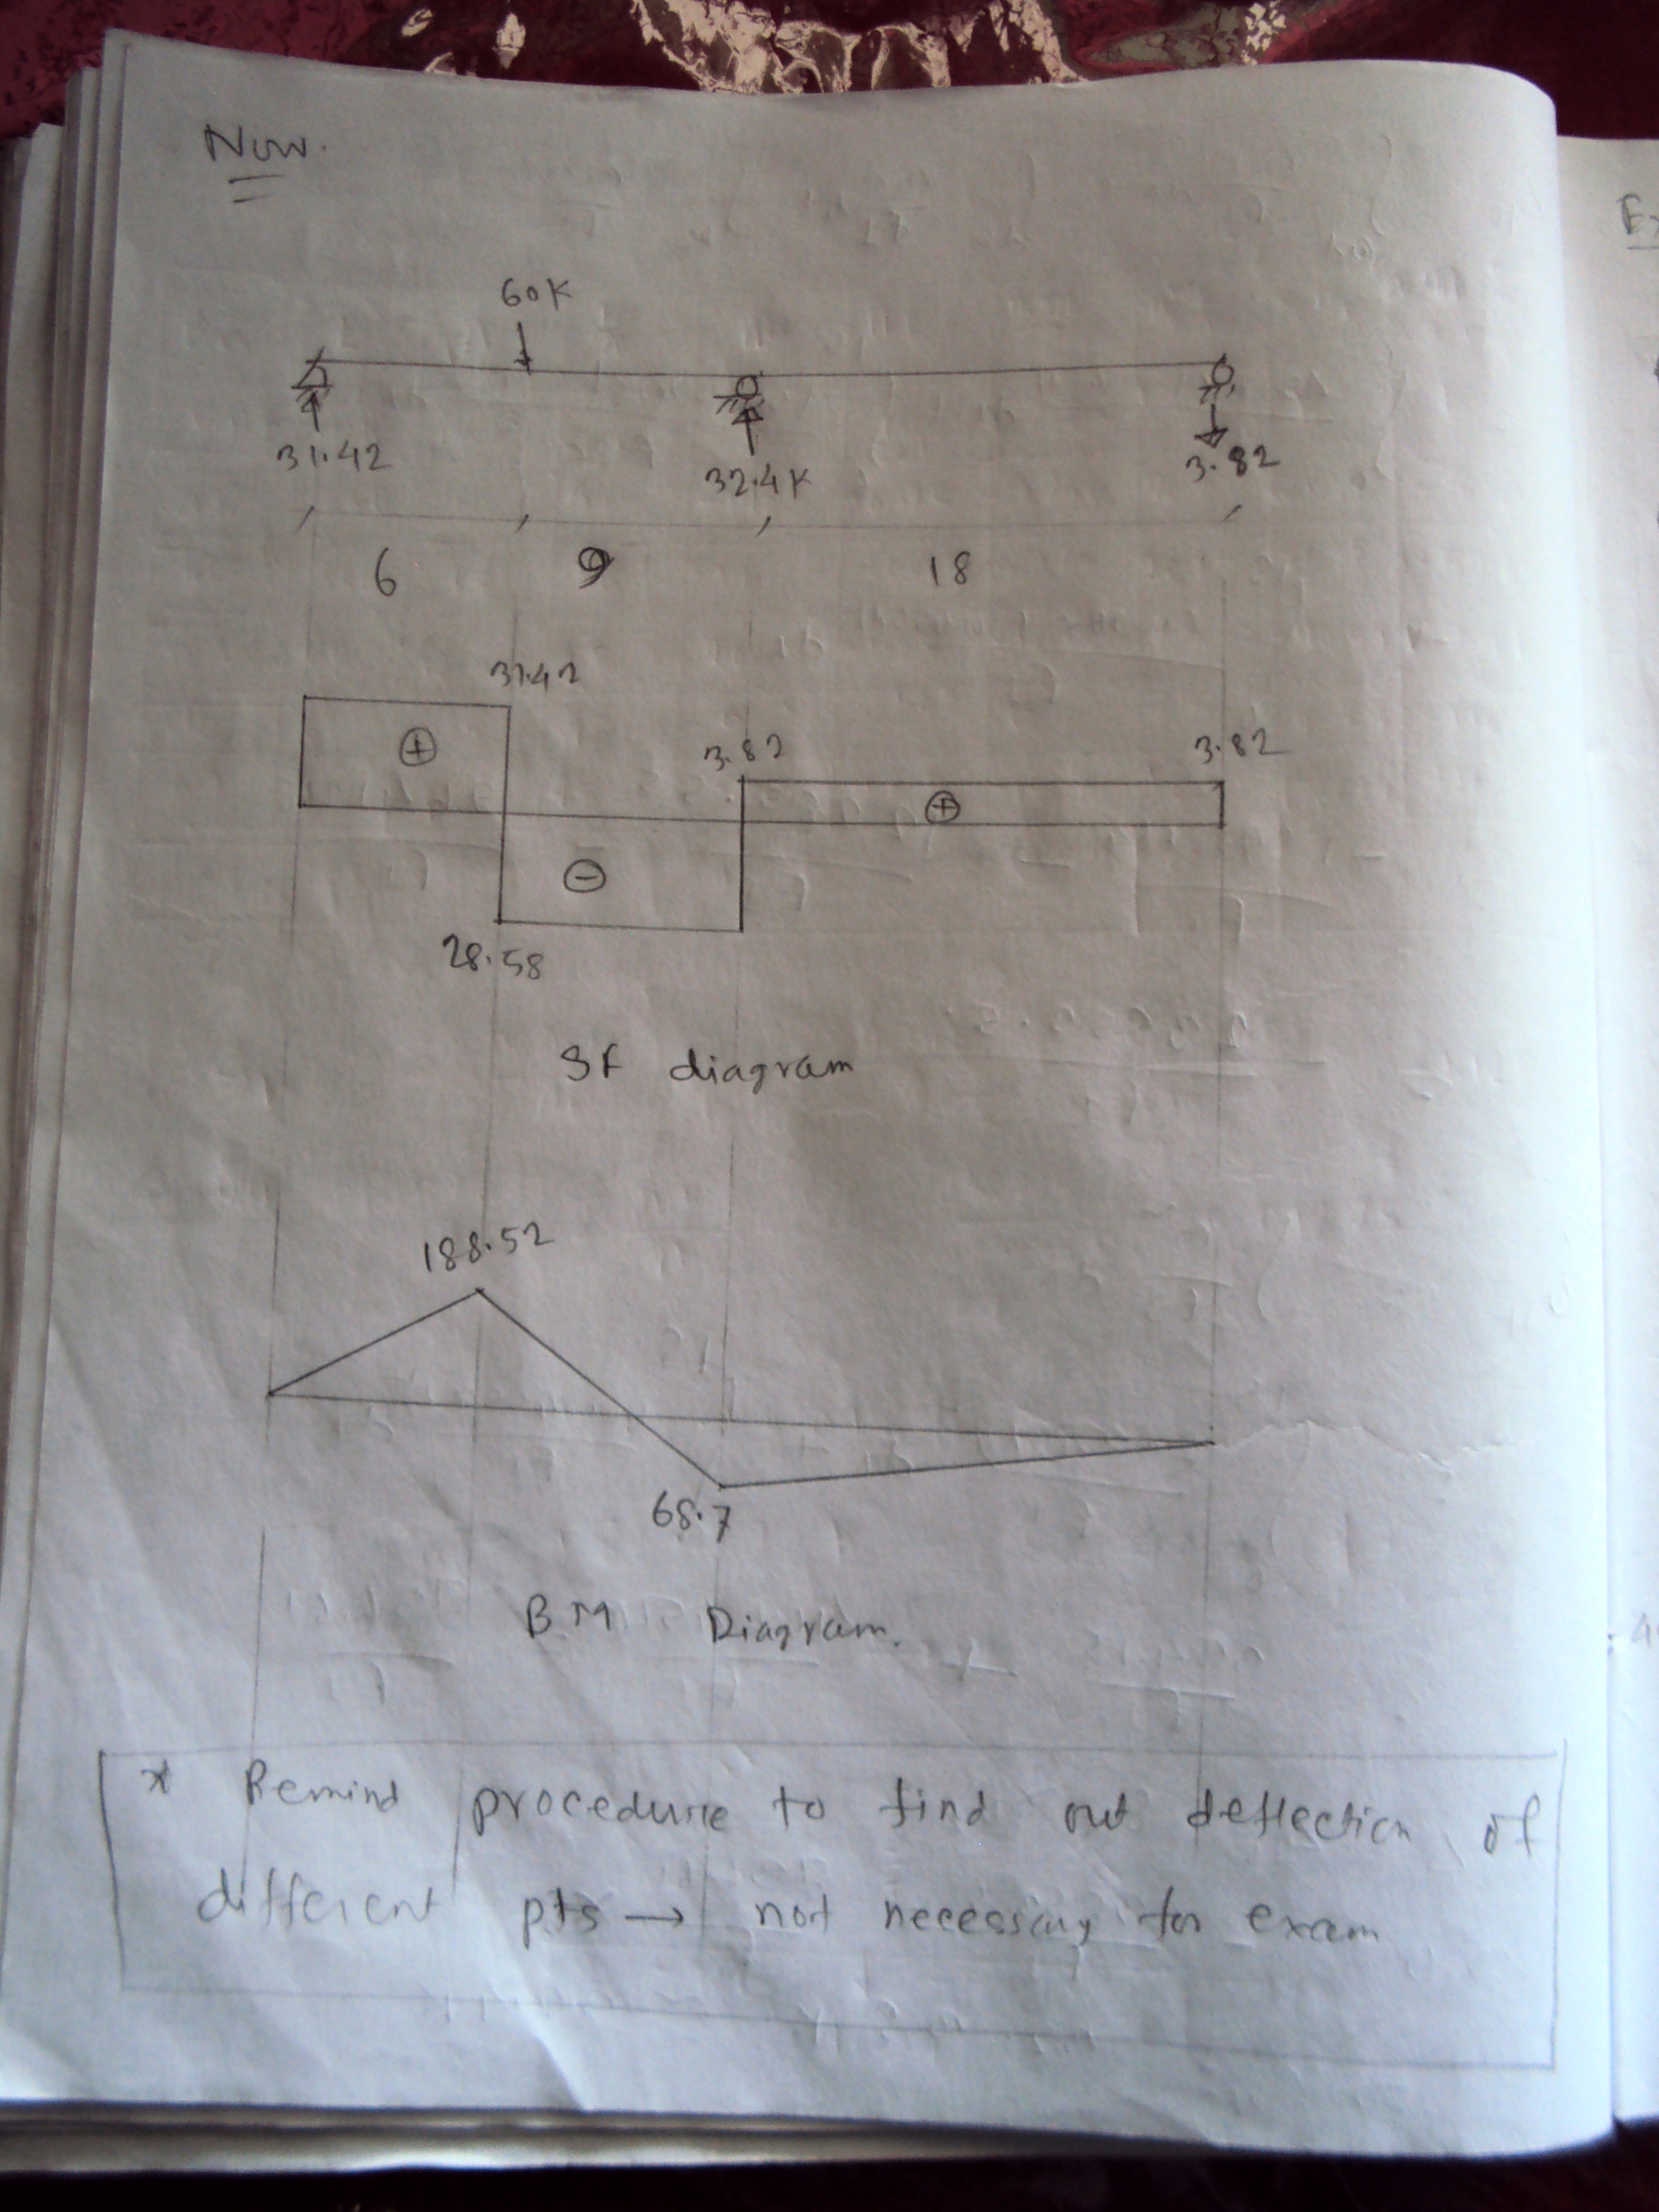 Now.
60K
31.42
32.4K
3.82
6 9 18
31.42
3.82 3.82
+
+
-
28.58
SF diagram
188.52
68.7
B.M Diagram.
* Remind procedure to find out deflection of
different pts → not necessary for exam